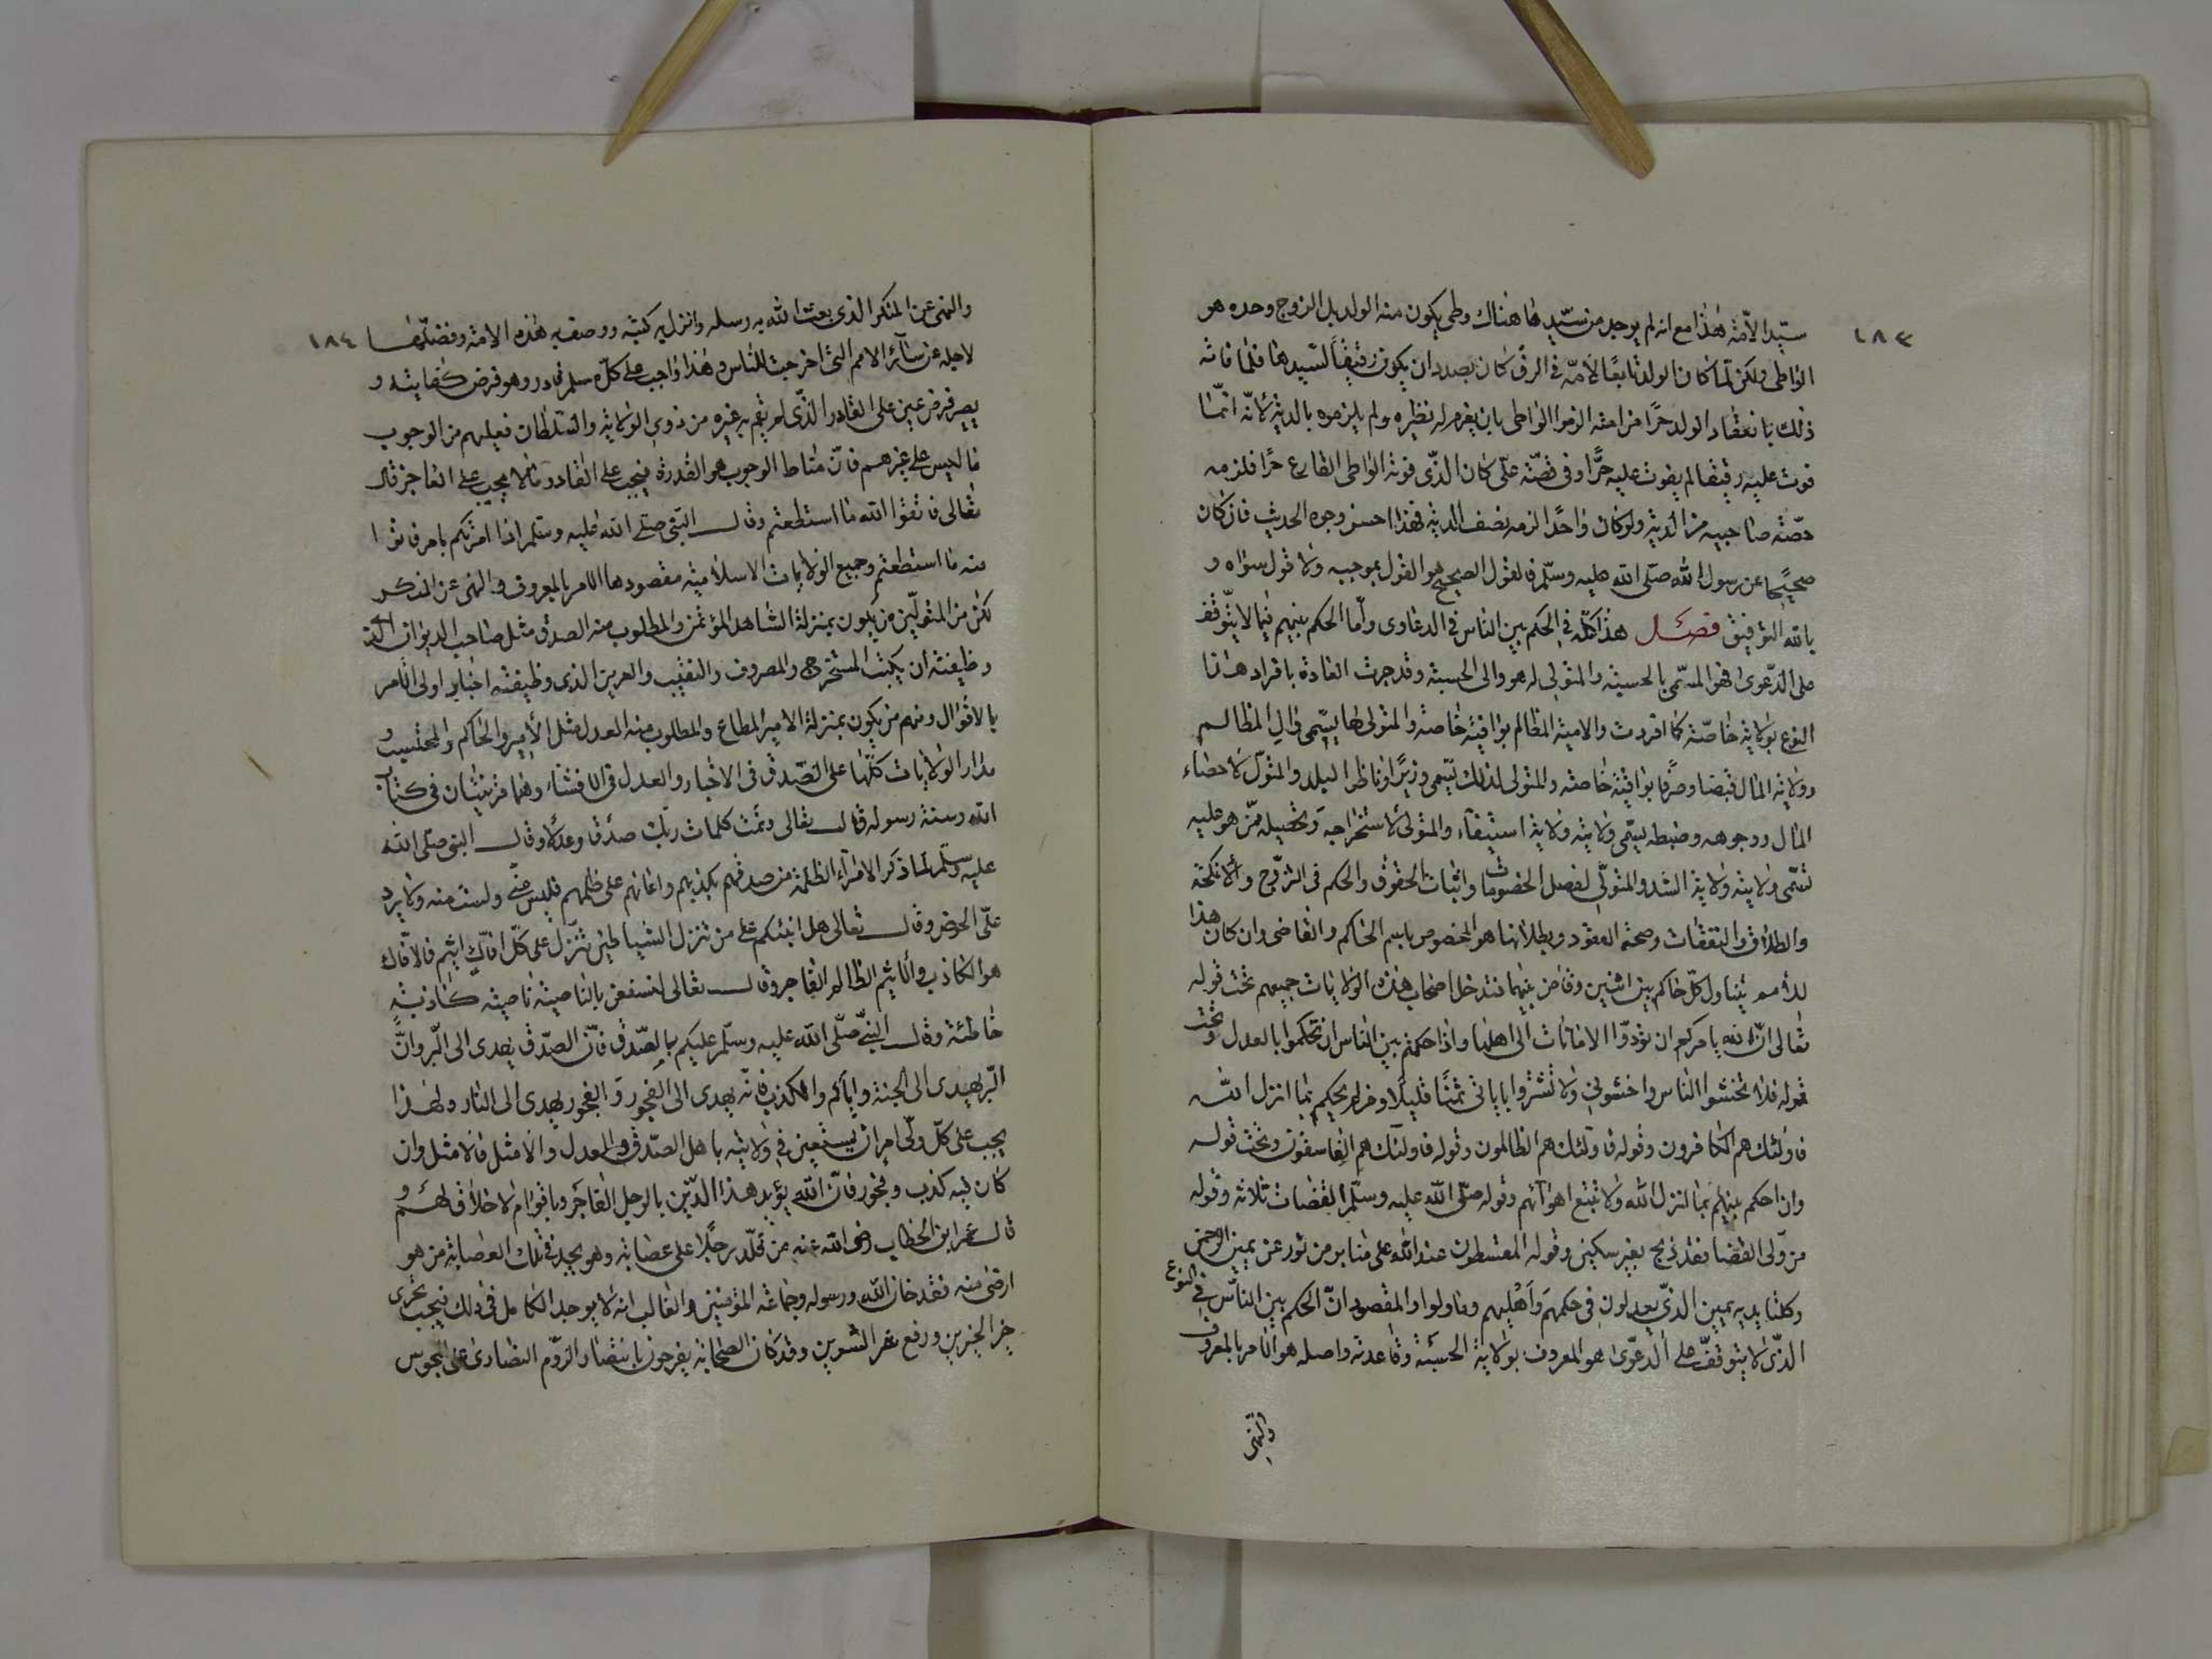 ١٨٣
سيّد الأمّة هذا مع انه لم يوجد من سيّدها هناك وطى يكون منه الولد بل الزوج وحده هو
الواطى ولكن لمّا كان الولد تابعًا لأمّه في الرق كان بصدد ان يكون رقيقًا لسيّدها فلما فاته
ذلك بانعقاد الولد حرًا من امته الزموا الواطى بان يغرم له نظيره ولم يلزموه بالدية لانّه انّما
فوت عليه رقيقا لم يفوت عليه حرًّا وفى قصّة علّى كان الذّى فوته الواطى القارع حرًا فلزمه
حصّة صاحبيه من الدية ولو كان واحدًا لزمه نصف الدية فهذا احسن وجوه الحديث فان كان
صحيحًا عن رسول الله صلّى الله عليه وسلّم فالقول الصحيح هو القول بموجبه ولا قول سواه و
بالله التوفيق فصل هذا كلّه في الحكم بين الناس في الدعاوى وامّا الحكم بينهم فيما لا يتوقف
على الدّعوى فهو المسمّى بالحسبة والمتولى له هو والى الحسبة وقد جرت العادة بافراد هذا
النوع بولاية خاصّة كما افردت ولاية المظالم بولاية خاصة والمتولى لها يسمّى والى المظالم
وولاية المال قبضا وصرفا بولاية خاصة والمتولى لذلك يسمى وزيرًا وناظر البلد والمتولّى لاحصاء
المال ووجوهه وضبطه يسمّى ولايته ولاية استيفاء والمتولى لاستخراجه وتحصيله ممّن هو عليه
تسمّى ولايته ولاية الشد والمتولّى لفصل الخصومات واثبات الحقوق والحكم في الفروج والانكحة
والطلاق والنفقات وصحة العقود وبطلانها هو المخصوص باسم الحاكم والقاضى وان كان هذا
لاسم يتناول كلّ حاكم بين اثنين وقاض بينهما فتدخل اصحاب هذه الولايات جميعهم تحت قوله
تعالى انّ الله يامركم ان تؤدّوا الامانات الى اهلها واذا حكمتم بين الناس ان تحكموا بالعدل وتحت
قوله فلا تخشوا الناس واخشونى ولا تشتروا باياتى ثمنًا قليلا ومن لم يحكم بما انزل الله
فاولئك هم الكافرون وقوله فاولئك هم الظالمون وقوله فاولئك هم الفاسقون وتحت قوله
وان احكم بينهم بما انزل الله ولا تتبع اهوائهم وقوله صلّى الله عليه وسلّم القضاة ثلاثة وقوله
من ولّى القضا فقد ذبح بغير سكين وقوله المقسطون عند الله على منابر من نور عن يمين الرحمن
وكلتا يديه يمين الذّين يعدلون في حكمهم واهليهم وما ولوا والمقصود انّ الحكم بين النّاس في النوع
الذّى لا يتوقفّ على الدعّوى هو المعروف بولاية الحسبة وقاعدته واصله هو الامر بالمعروف
والنّهى
١٨٤
والنهى عن المنكر الذى بعث الله به رسله وانزل به كتبه ووصف به هذه الامة وفضلّها
لاجله عن سائر الامم التى اخرجت للناس وهذا واجب على كلّ مسلم قادر وهو فرض كفاية و
يصير فرض عين على القادر الذّى لم يقم به غيره من ذوى الولاية والسّلطان فعليهم من الوجوب
ما ليس على غيرهم فانّ مناط الوجوب هو القدرة فيجب على القادر ما لا يجب على العاجز قال
تعالى فاتقوا الله ما استطعتم وقال النّبى صلّى الله عليه وسلّم اذا امرتكم بامر فاتوا
منه ما استطعتم وجميع الولايات الاسلامية مقصودها الامر بالمعروف والنهى عن المنكر
لكن من المتولّين من يكون بمنزلة الشاهد المؤتمن والمطلوب منه الصدق مثل صاحب الديوان الذى
وظيفته ان يكتب المستخرج والمصروف والنقيب والعريف الذى وظيفته اخبار اولى الامر
بالاحوال ومنهم من يكون بمنزلة الامير المطاع والمطلوب منه العدل مثل الأمير والحاكم والمحتسب و
مدار الولايات كلّها على الصّدق فى الاخبار والعدل فى الانشاء وهما قرينان فى كتاب
الله وسنة رسوله قال تعالى وتمت كلمات ربّك صدقا وعدلا وقال النبى صلّى الله
عليه وسلّم لما ذكر الامراء الظلمة من صدقهم بكذبهم واعانهم على ظلمهم فليس منّى ولست منه ولا يرد
علىّ الحوض وقال تعالى هل انبئكم على من تنزل الشياطين تنزّل على كلّ افّاك اثيم فالافّاك
هو الكاذب والاثيم الظالم الفاجر وقال تعالى لنسفعن بالناصية ناصية كاذبة
خاطئة وقال النبىّ صلّى الله عليه وسلّم عليكم بالصّدق فانّ الصّدق يهدى الى البّر وانّ
البّر يهدى الى الجنة وايّاكم والكذب فانّه يهدى الى الفجور والفجور يهدى الى النار ولهذا
يجب على كلّ ولّى امر ان يستعين في ولايته باهل الصّدق والعدل والامثل فالامثل وان
كان فيه كذب وفجور فانّ الله يؤيد هذا الدّين بالرجل الفاجر وباقوام لا خلاق لهم و
قال عمر ابن الخطاب رضى الله عنه من قلّد رجلًا على عصابة وهو يجد فى تلك العصابة من هو
ارضى منه فقد خان الله ورسوله وجماعة المؤمنين والغالب انه لا يوجد الكامل فى ذلك فيجب تحرى
خير الخيرين ودفع شر الشرين وقد كان الصحابة يفرحون بانتصار الرّوم النصارى على المجوس